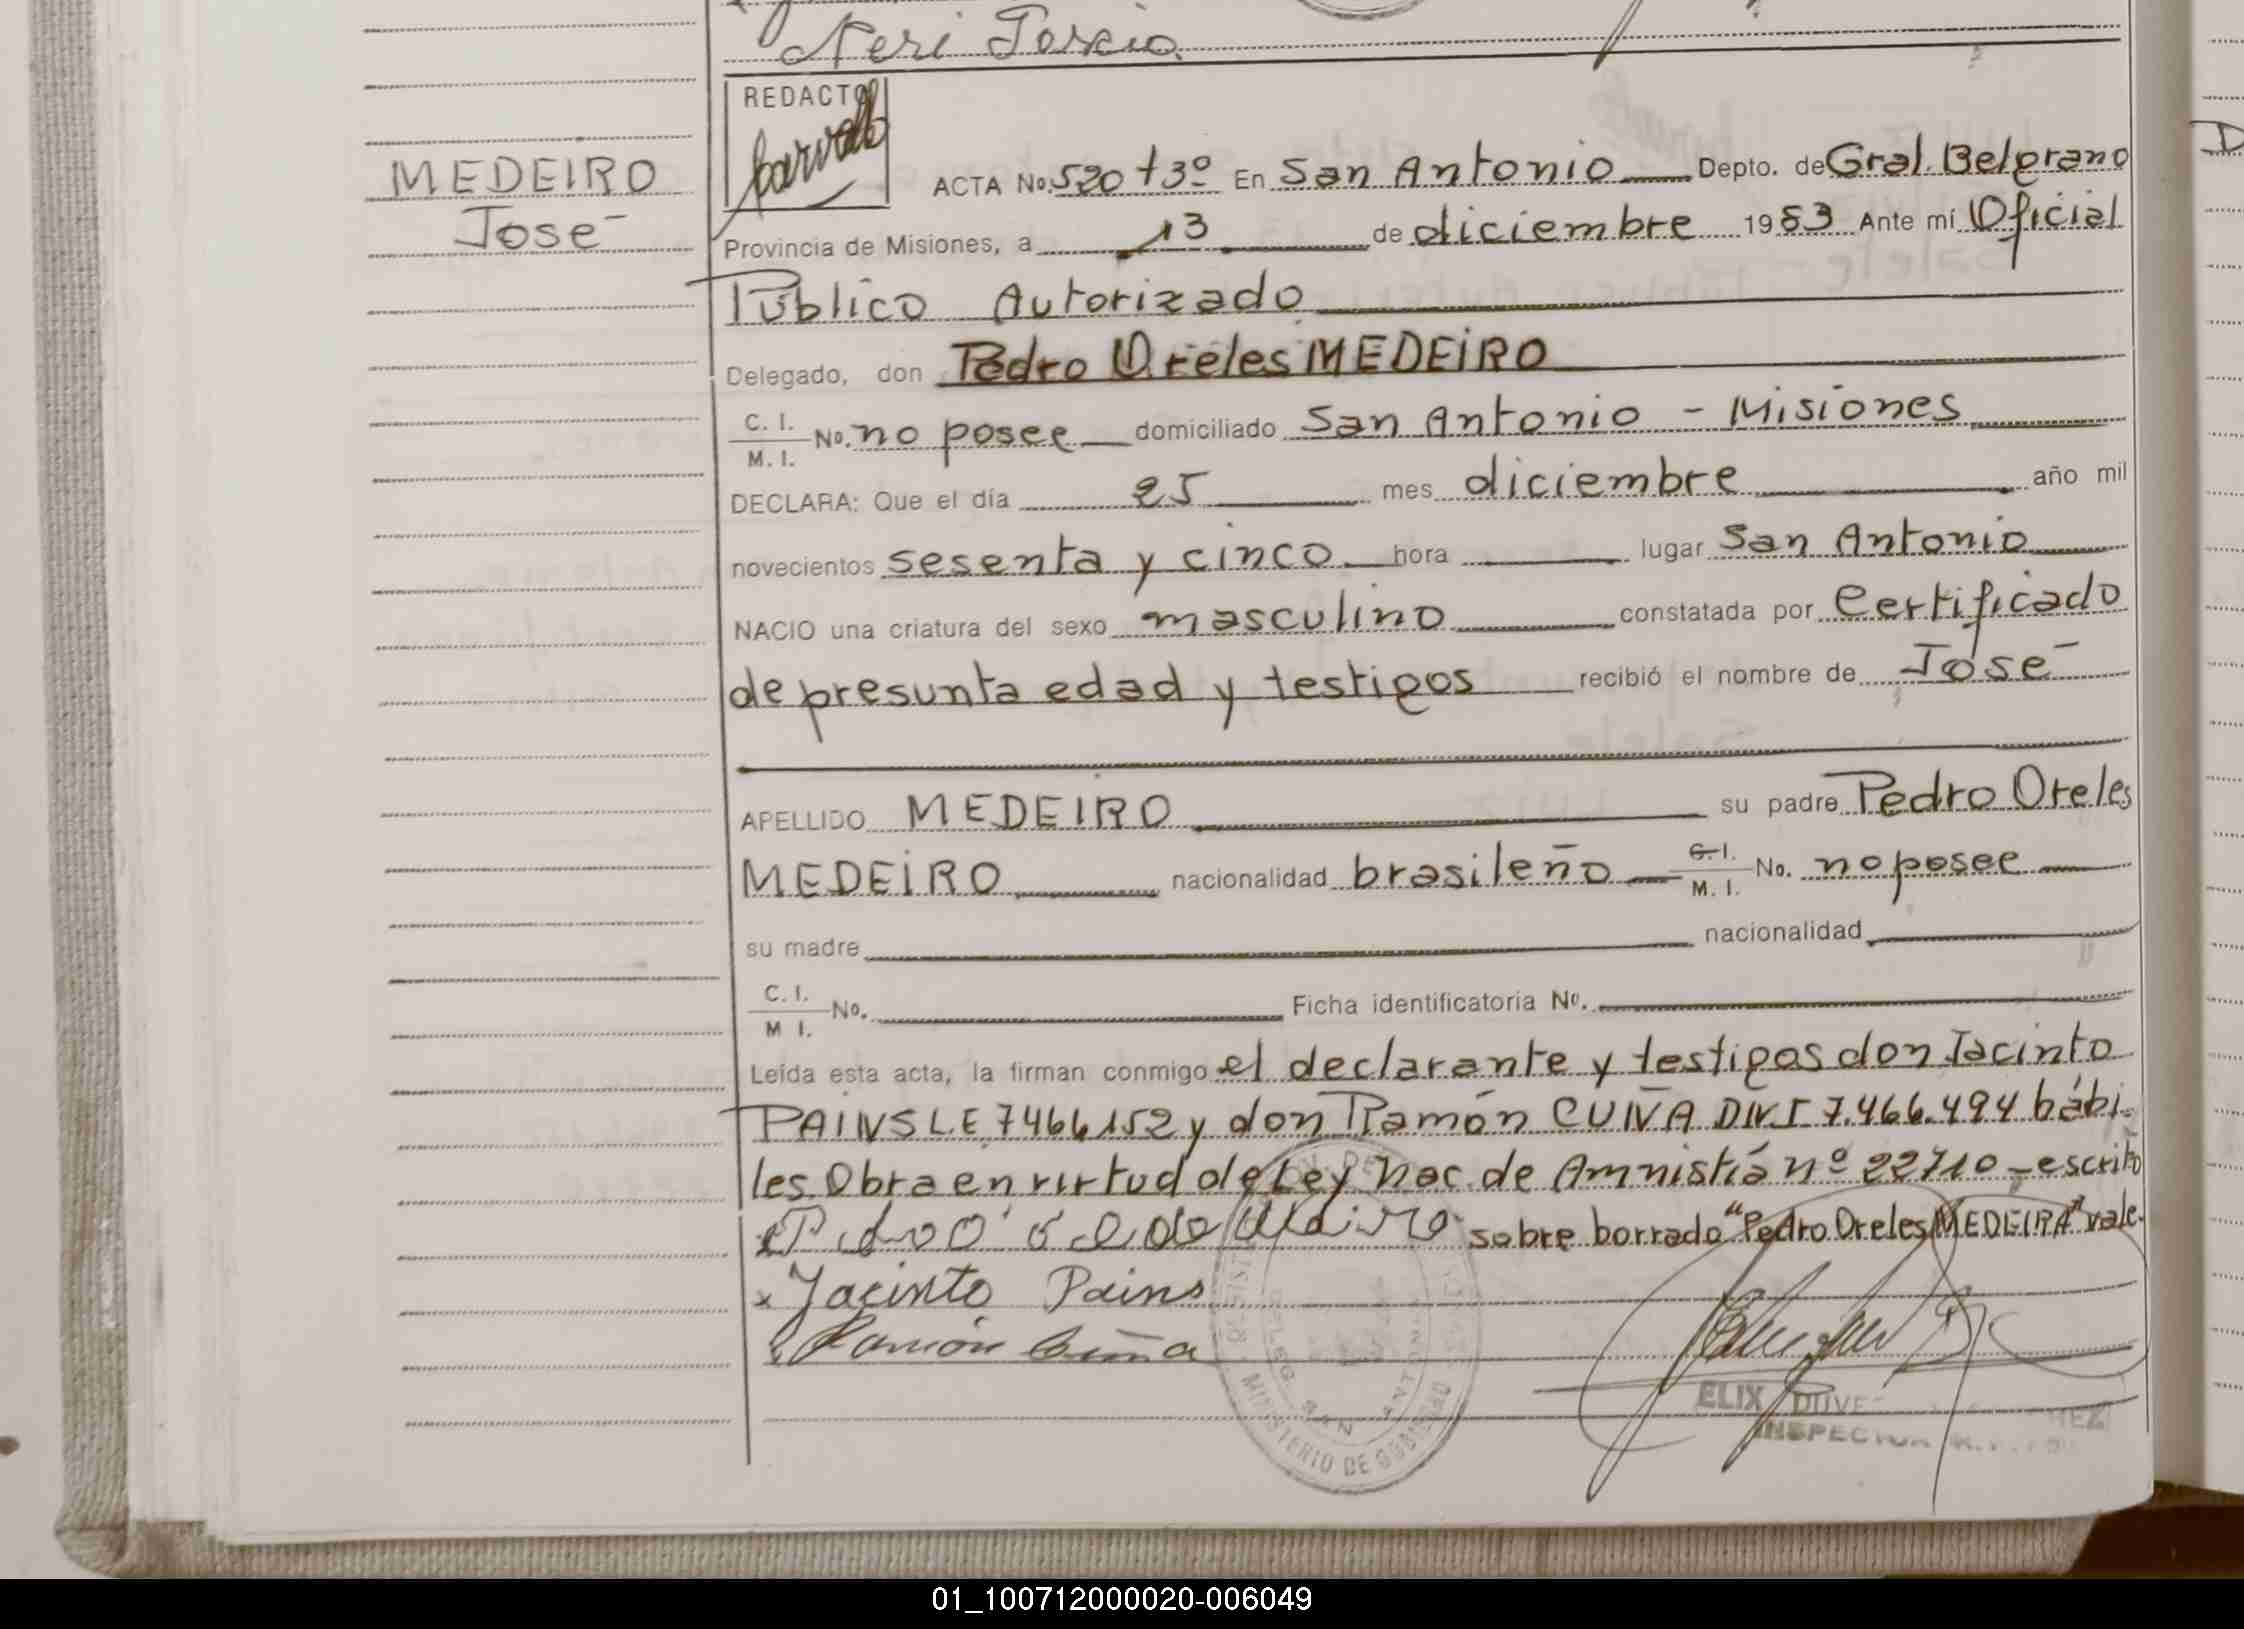 Neri
REDACTO
MEDEIRO
José
ACTA No. 520 t3º En San Antonio Depto. de Gral. Belgrano
Provincia de Misiones, a 13 de diciembre 1983 Ante mí Oficial
Público Autorizado
Delegado, don Pedro Oreles MEDEIRO
C. I.
M. I. No. no posee domiciliado San Antonio - Misiones
DECLARA: Que el día 25 mes diciembre año mil
novecientos sesenta y cinco hora lugar San Antonio
NACIO una criatura del sexo masculino constatada por Certificado
de presunta edad y testigos recibió el nombre de José
APELLIDO MEDEIRO su padre Pedro Oreles
MEDEIRO nacionalidad brasileño C. I. M. I. No. no posee
su madre nacionalidad
C. I.
M I. No. Ficha identificatoria No.
Leída esta acta, la firman conmigo el declarante y testigos don Jacinto
PAINS L.E 7466152 y don Ramón CUIÑA DNI 7.466.494 hábi-
les. Obra en virtud de Ley Nac. de Amnistía nº 22710 - escrito
sobre borrado "Pedro Oreles MEDEIRA" vale.
x Jacinto Pains
Ramón Cuiña
DELEG. SAN ANTONIO
MINISTERIO DE GOBIERNO
ELIX
INSPECTOR
01_100712000020-006049